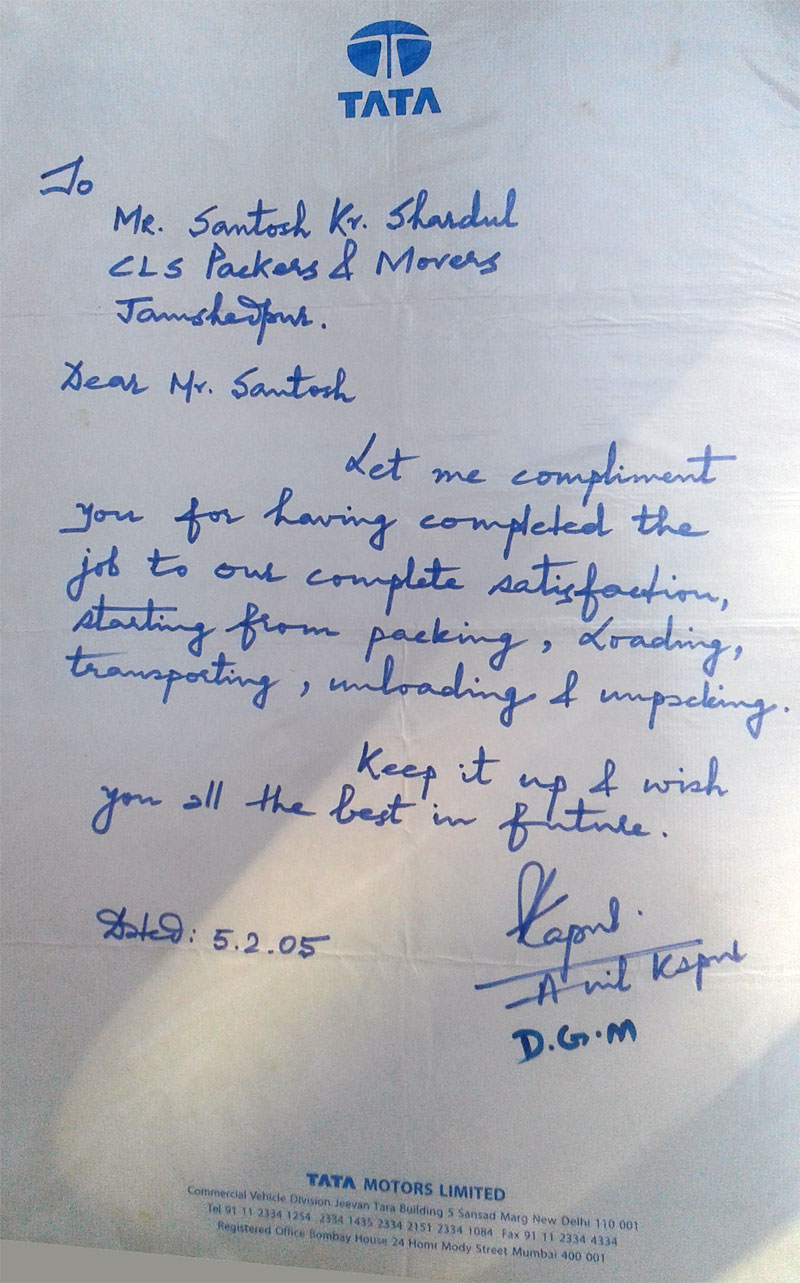 TATA
To
Mr. Santosh Kr. Shardul
CLS Packers & Movers
Jamshedpur.
Dear Mr. Santosh
Let me compliment
you for having completed the
job to our complete satisfaction,
starting from packing, Loading,
transporting, unloading & unpacking.
Keep it up & wish
you all the best in future.
Kapur.
Dated: 5.2.05
Anil Kapur
D.G.M
TATA MOTORS LIMITED
Commercial Vehicle Division Jeevan Tara Building 5 Sansad Marg New Delhi 110 001
Tel 91 11 2334 1254 2334 1435 2334 2151 2334 1084 Fax 91 11 2334 4334
Registered Office Bombay House 24 Homi Mody Street Mumbai 400 001